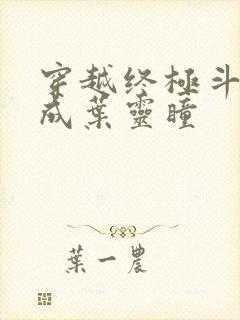 穿越终極斗
成葉靈瞳
葉一農